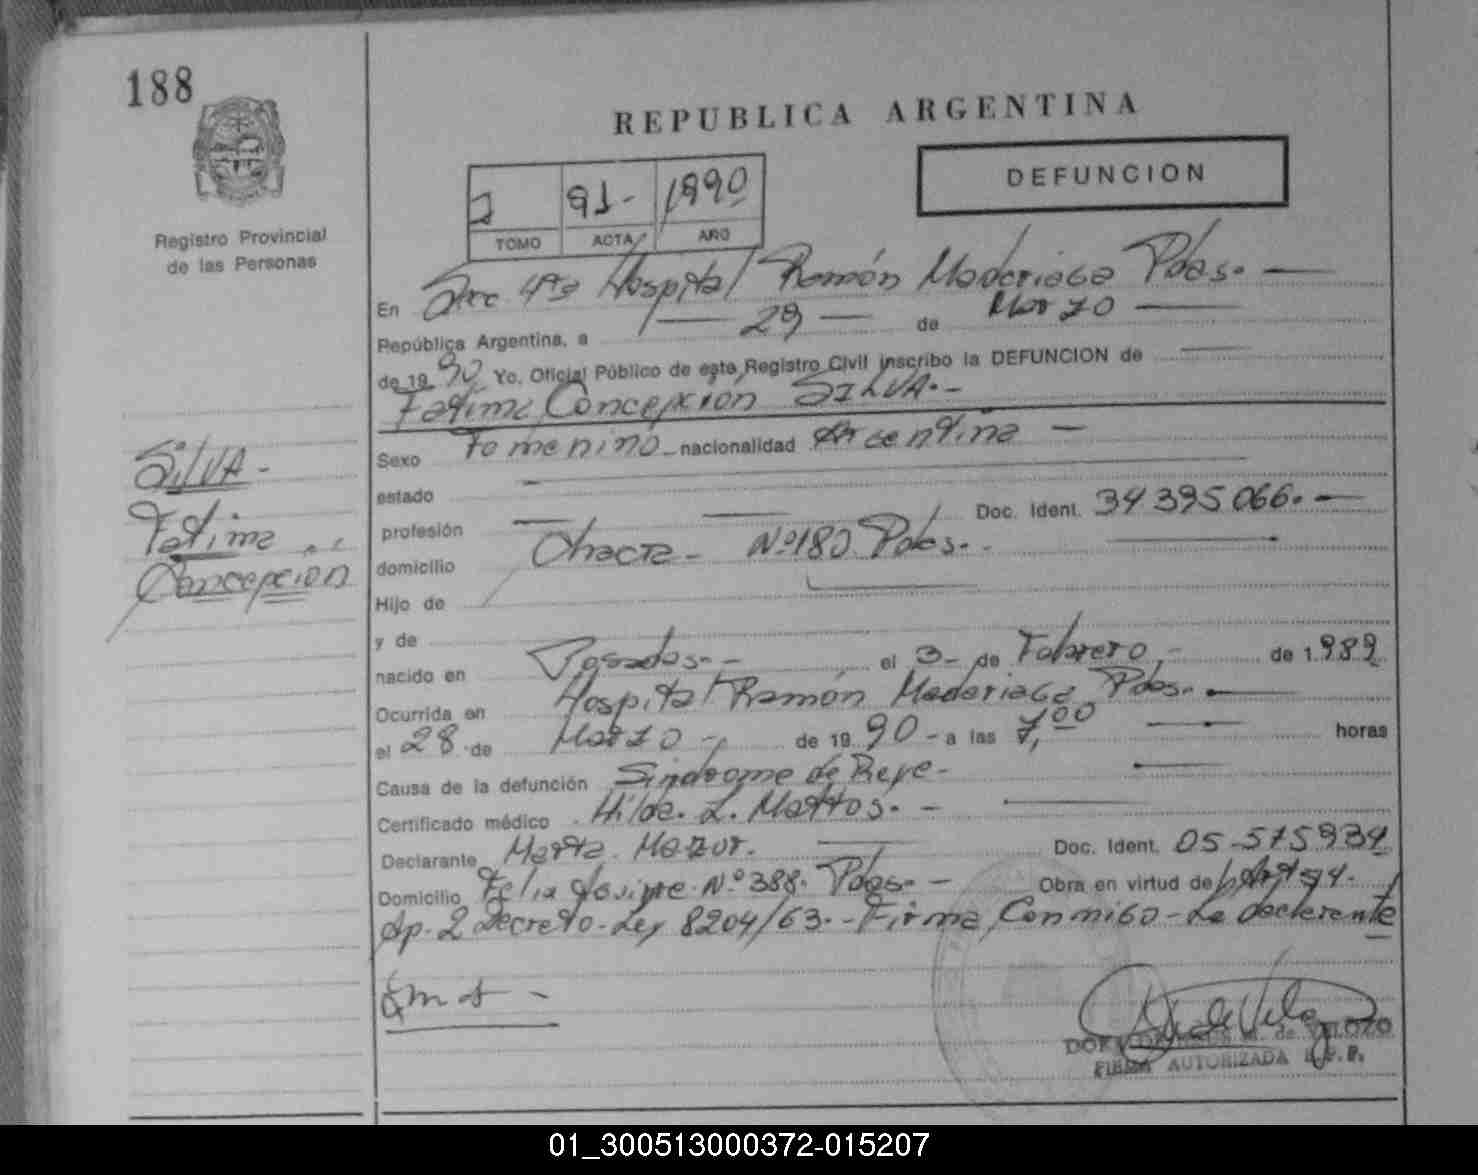 188
REPUBLICA ARGENTINA
DEFUNCION
91- 1990
TOMO ACTA AÑO
Registro Provincial
de las Personas
En Secc 4ta Hospital Ramón Madariaga Pdas.-
República Argentina, a 29 de Marzo
de 1990, Yo, Oficial Público de este Registro Civil inscribo la DEFUNCION de
Fatima Concepción SILVA.-
SILVA-
Fatima
Concepción
Sexo Femenino nacionalidad Argentina -
estado
profesión Doc. Ident. 34 395 066.-
domicilio Chacra- Nº180 Pdas.-
Hijo de
y de
nacido en Posadas.- el 3- de Febrero,- de 1.989
Ocurrida en Hospital Ramón Madariaga Pdas.-
el 28 de Marzo-, de 1990- a las 7,00 horas
Causa de la defunción Sindrome de Reye-
Certificado médico Hilda. L. Mattos.-
Declarante Marta Mazur. Doc. Ident. 05-575934
Domicilio Felix Nº388. Pdas.- Obra en virtud de
Ap. 2 Decreto-Ley 8204/63.-Firma Conmigo-La declarente
de VELOZO
FIRMA AUTORIZADA R.P.P.
01_300513000372-015207